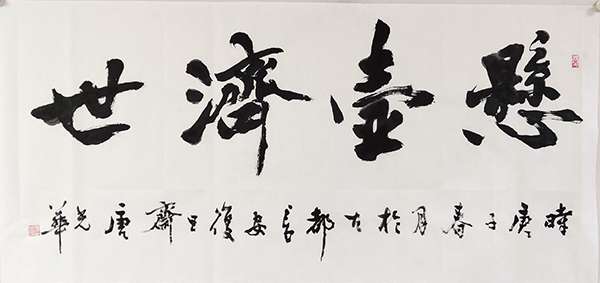 懸壺濟世
時庚子春月於古都長安復旦齋唐光華